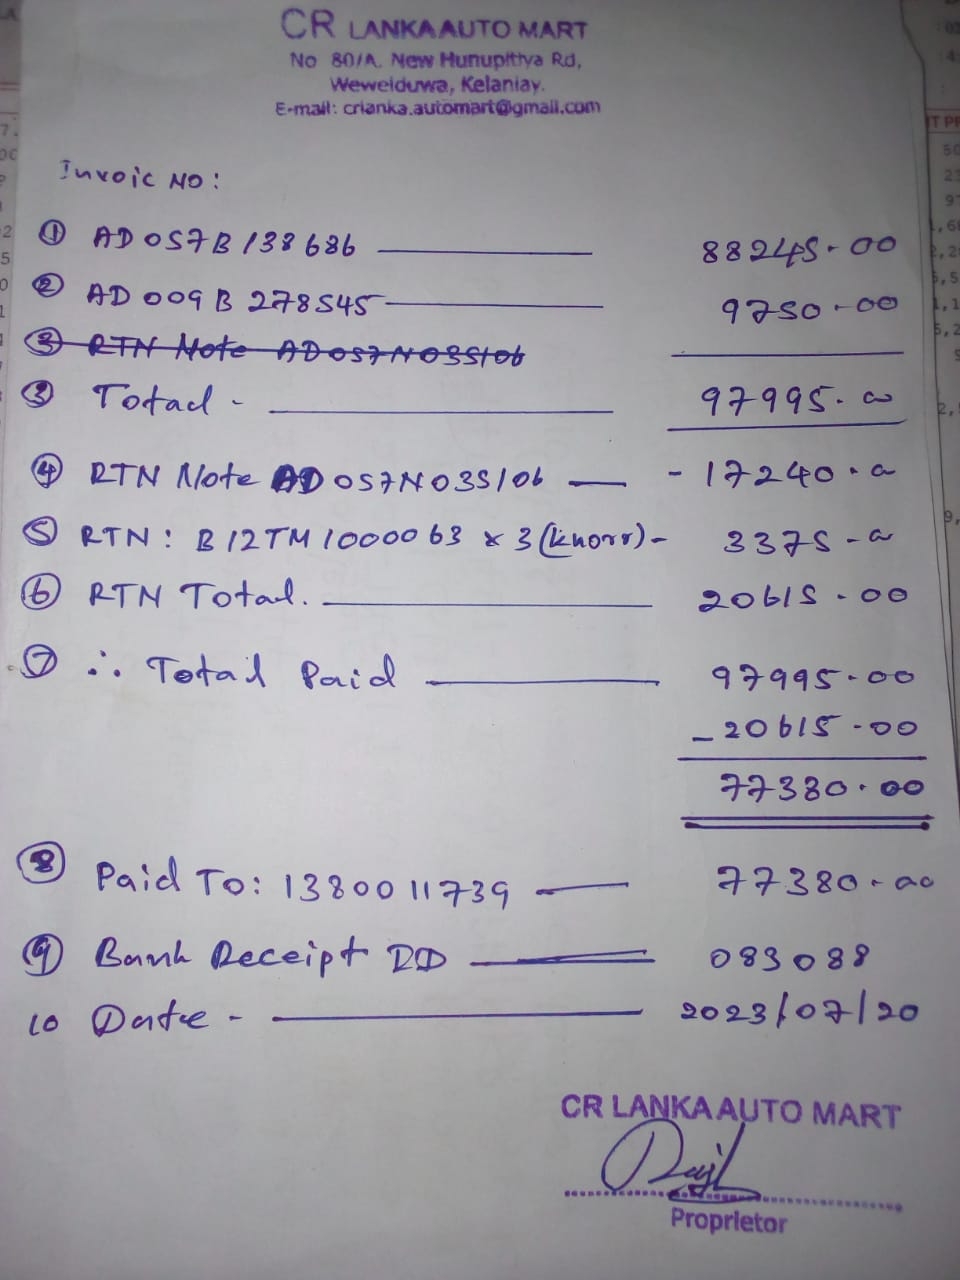 CR LANKA AUTO MART
No 80/A, New Hunupitiya Rd,
Wewelduwa, Kelaniay.
E-mail: crlanka.automart@gmail.com
Invoic NO:
① AD057B138686 88245.00
② AD009B278545 9750.00
③ RTN Note AD057N035106
③ Total - 97995.00
④ RTN Note AD057N035106 - 17240.00
⑤ RTN: B12TM1000063 x 3 (knorr) - 3375-00
⑥ RTN Total. 20615.00
⑦ ∴ Total Paid 97995.00
- 20615.00
77380.00
⑧ Paid To: 1380011739 77380.00
⑨ Bank Receipt ID 083088
10 Date - 2023/07/20
CR LANKA AUTO MART
Proprietor